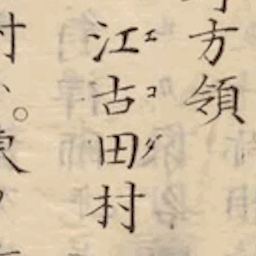 方領
江古田村
エコダ
村